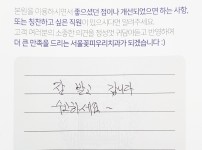 본원을 이용하시면서 좋으셨던 점이나 개선되었으면 하는 사항,
또는 칭찬하고 싶은 직원이 있으시다면 말해주세요.
고객 여러분의 소중한 의견을 정성껏 귀담아듣고 반영하여
더 큰 만족을 드리는 서울꽃미우리치과가 되겠습니다 :)
잘 받고 갑니다
수고하세요~